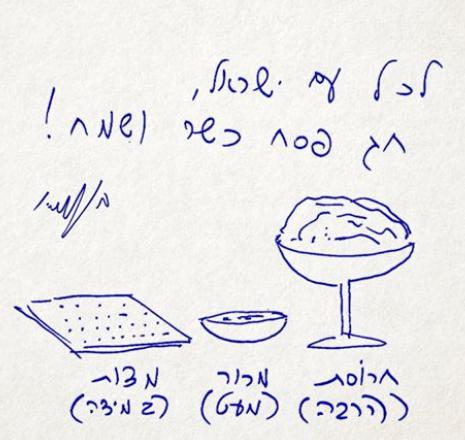 לכל עם ישראל,
חג פסח כשר ושמח!
חרוסת מרור מצות
(הרבה) (מעט) (במידה)